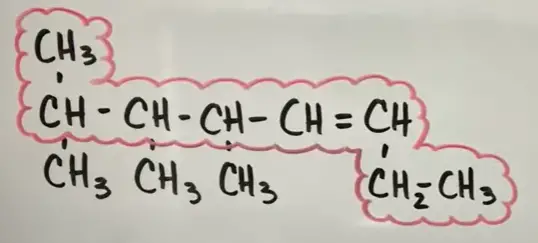 CH₃
CH - CH - CH - CH = CH
CH₃ CH₃ CH₃ CH₂-CH₃